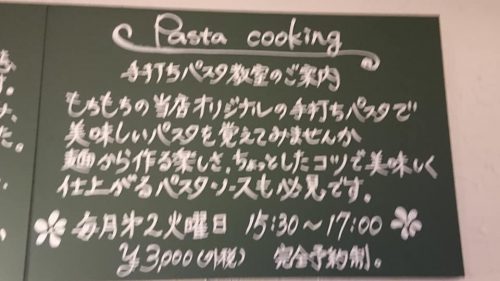 Pasta cooking
手打ちパスタ教室のご案内
もちもちの当店オリジナルの手打ちパスタで
美味しいパスタを覚えてみませんか
麺から作る楽しさ、ちょっとしたコツで美味しく
仕上がるパスタソースも必見です。
毎月第2火曜日 15:30~17:00
¥3,000(外税) 完全予約制。